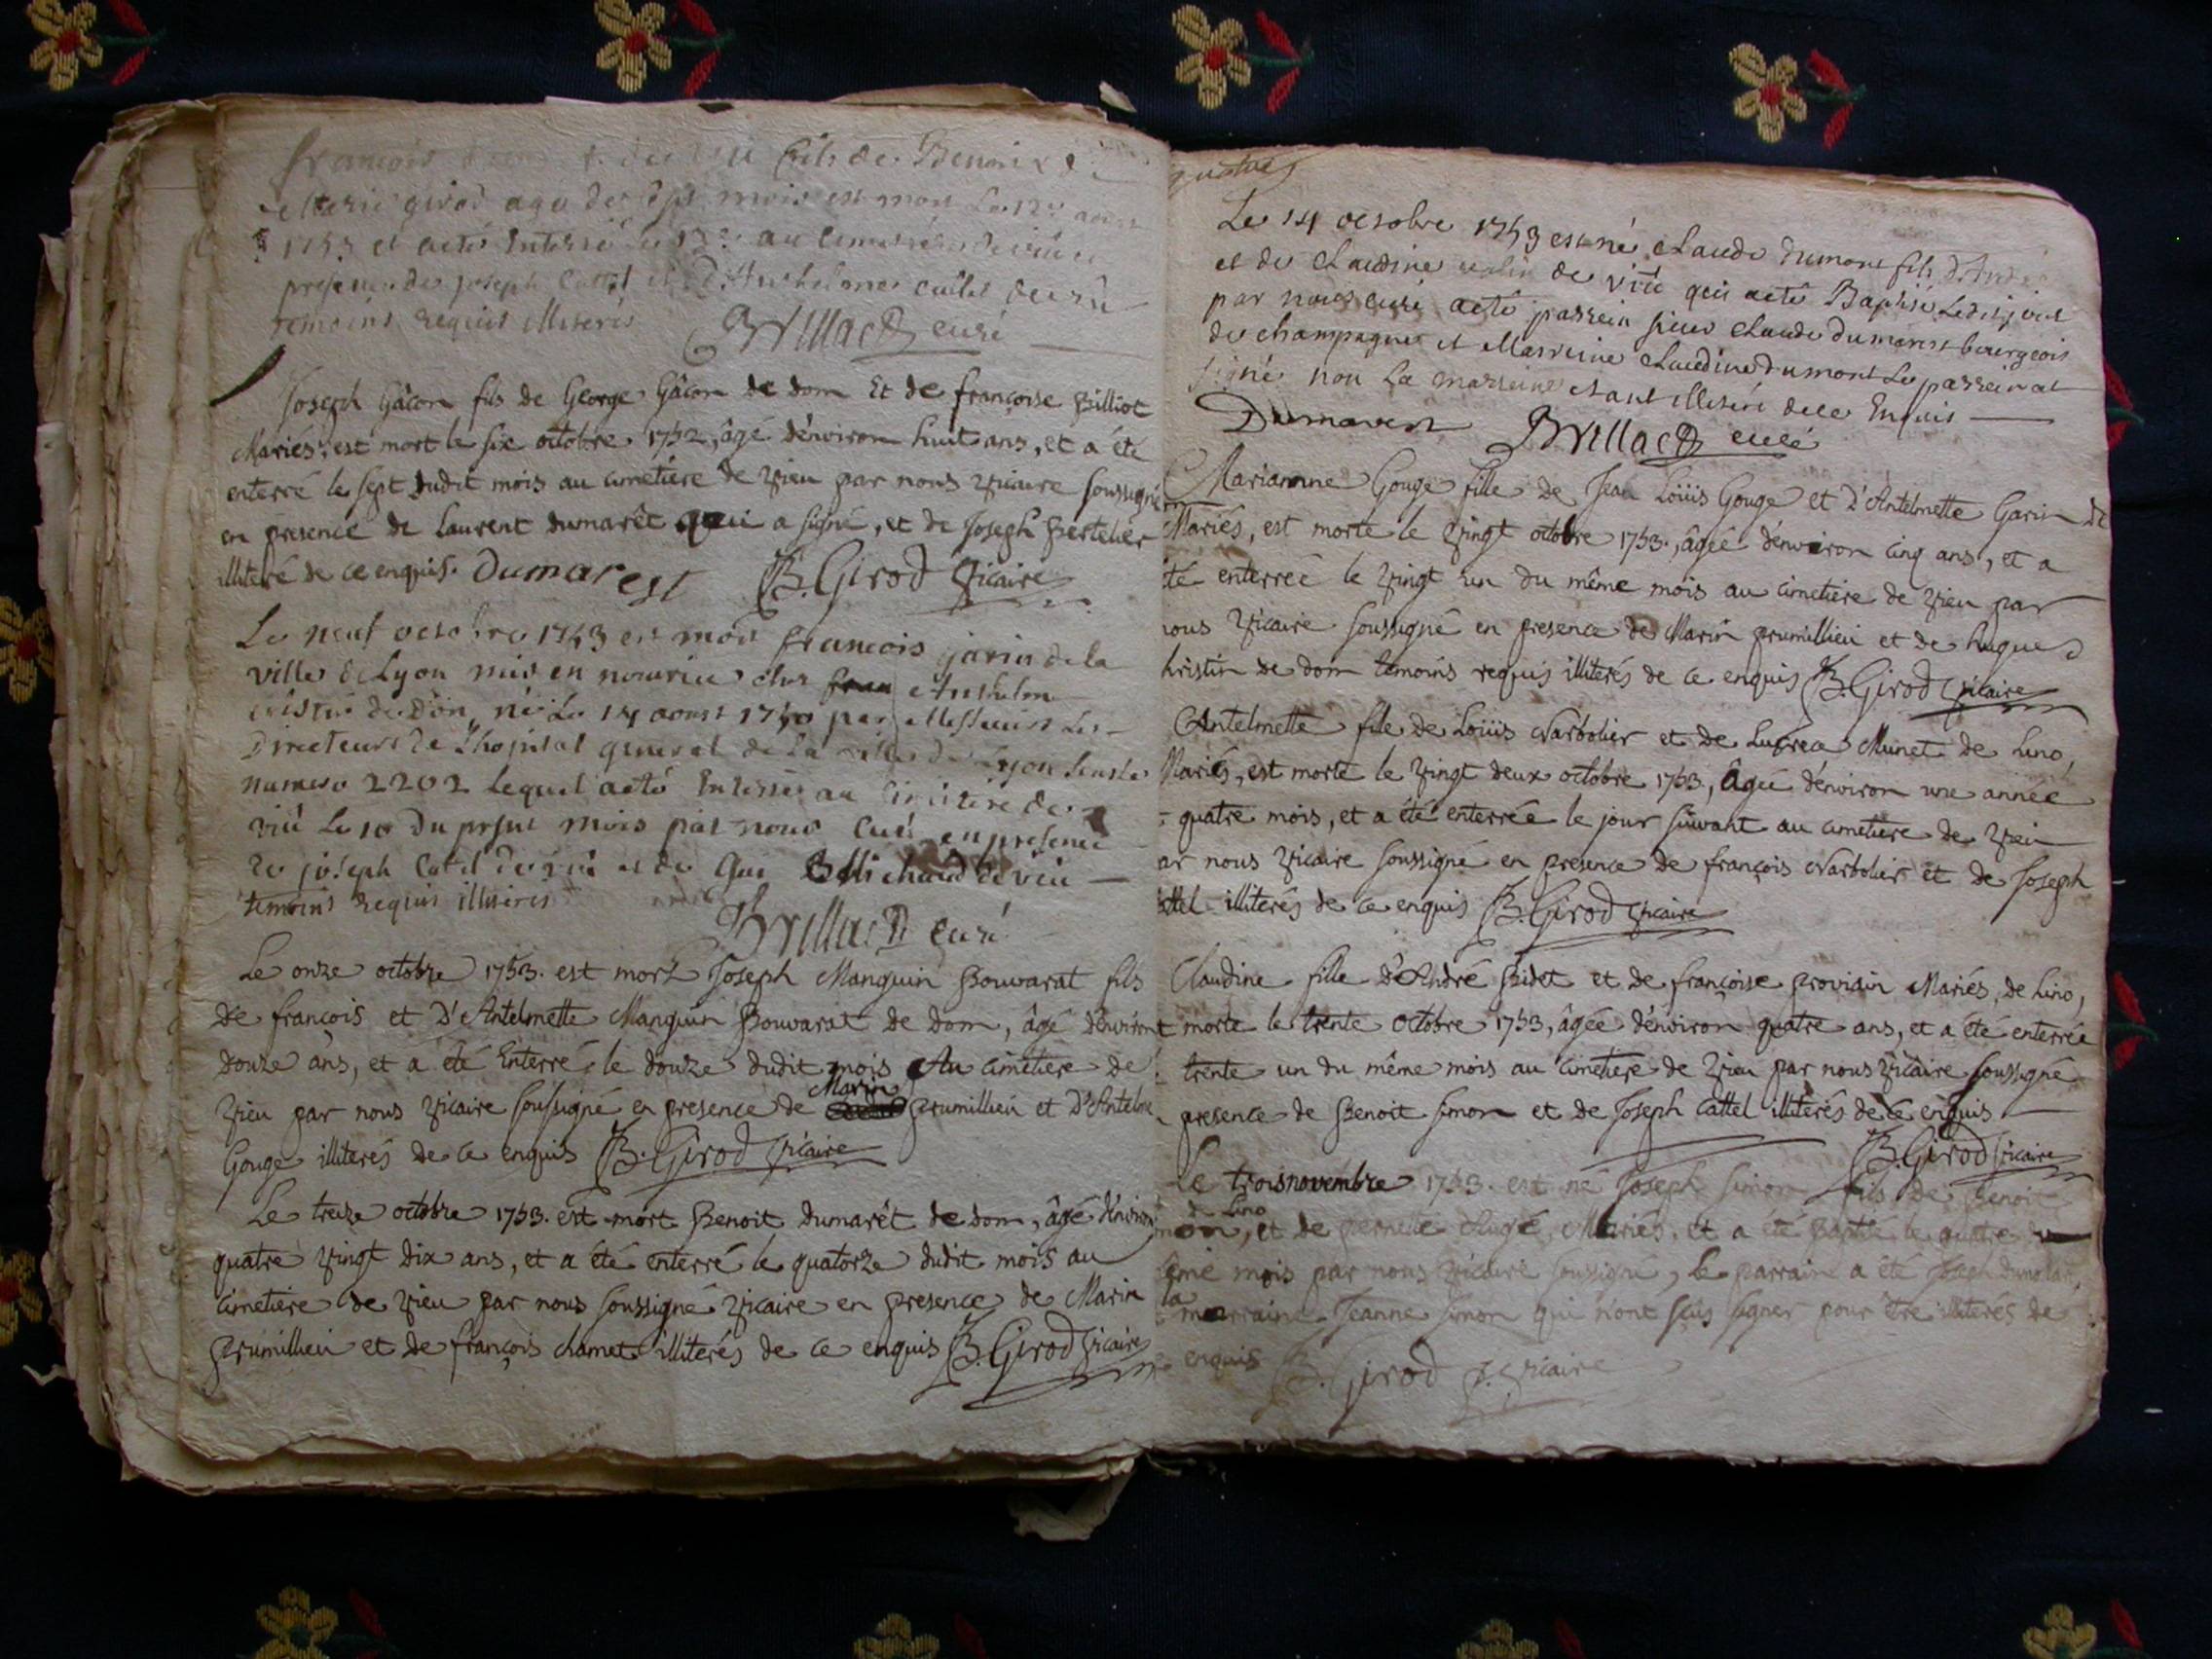 francois fils de Benoit
Marie girod agé de sept mois est mort Le 12e
1753 et a eté Enterré le 13e au
presence de joseph Cattel et d'Anthelme caillet
temoins Requis illiteris Brillat curé
Joseph Gâcon fils de George Gâcon de dom Et de françoise Billiot
Mariés, est mort le six octobre 1752, âgé d'environ huit ans, et a été
enterré le sept dudit mois au cimetiere de Vieu par nous Vicaire soussigné
en presence de laurent dumarêt qui a signé, et de Joseph Bertelier
illiteré de ce enquis. Dumarest B. Girod Vicaire
Le neuf octobre 1753 est mort francois garin de la
ville de Lyon mis en nourrice ches Anthelm
cristin de Don, né Le 14 aoust 1750 par Messieurs Les
Directeurs de Lhopital general de la ville de Lyon sous le
numero 2202 Lequel a eté Enterré au cimitère de
viu Le 10 du prsnt mois par nous curé en presence
de joseph Catel de viu et de Michaud de viu
temoins Requis illiteris
Brillat curé
Le onze octobre 1753. est mort Joseph Manguin Bouvarat fils
de françois et D'Antelmette Manguin Bouvarat de dom, âgé d'environ
douze ans, et a été Enterré le douze dudit mois Au cimetiere de
Marin
Vieu par nous Vicaire soussigné en presence de prumillieu et D'Antelme
Gouge illiterés de ce enquis B. Girod Vicaire
Le treize octobre 1753. est mort Benoit dumarêt de dom, âgé d'environ
quatre Vingt Dix ans, et a été enterré le quatorze dudit mois au
cimetiere de Vieu par nous soussigné Vicaire en presence de Marin
prumillieu et de françois chamet illiterés de ce enquis B. Girod Vicaire
quatre
Le 14 octobre 1753 est né Claude Dumont fils D'André
et de Claudine de viu qui a eté Baptisé Ledit jour
par nous curé a eté parrein sieur Claude Dumarest bourgeois
de champagne et Marreine Claudine dumont Le parrein at
signé non La marreine etant illiteré de ce Enquis
Dumarest Brillat curé
Marianne Gouge fille de Jean Loüis Gouge et D'Antelmette Garin de
Mariés, est morte le Vingt octobre 1753., âgée d'environ cinq ans, et a
té enterrée le Vingt un du même mois au cimetiere de Vieu par
nous Vicaire soussigné en presence de Marin prumillieu et de hugue
hristin de dom temoins requis illiterés de ce enquis B. Girod Vicaire
Antelmette fille de Loüis Narbolier et de Lucrece Munet de Lino,
Mariés, est morte le Vingt deux octobre 1753, âgée d'environ une année
quatre mois, et a été enterrée le jour suivant au cimetiere de Vieu
ar nous Vicaire soussigné en presence de françois Narbolier et de Joseph
ttel illiterés de ce enquis B. Girod Vicaire
Claudine fille d'André Bidet et de françoise provian Mariés, de Lino,
t morte le trente octobre 1753, âgée d'environ quatre ans, et a été enterrée
trente un du même mois au cimetiere de Vieu par nous Vicaire soussigné
presence de Benoit simon et de Joseph cattel illiterés de ce enquis
B. Girod Vicaire
Le trois novembre 1753. est né Joseph simon fils de Benoit
de Lino
mon, et de pernette Augé, Mariés, et a été baptisé le quatre du
ême mois par nous Vicaire soussigné, le parrain a été Joseph
la
marraine Jeanne simon qui n'ont sçus signer pour être illiterés de
enquis B. Girod Vicaire